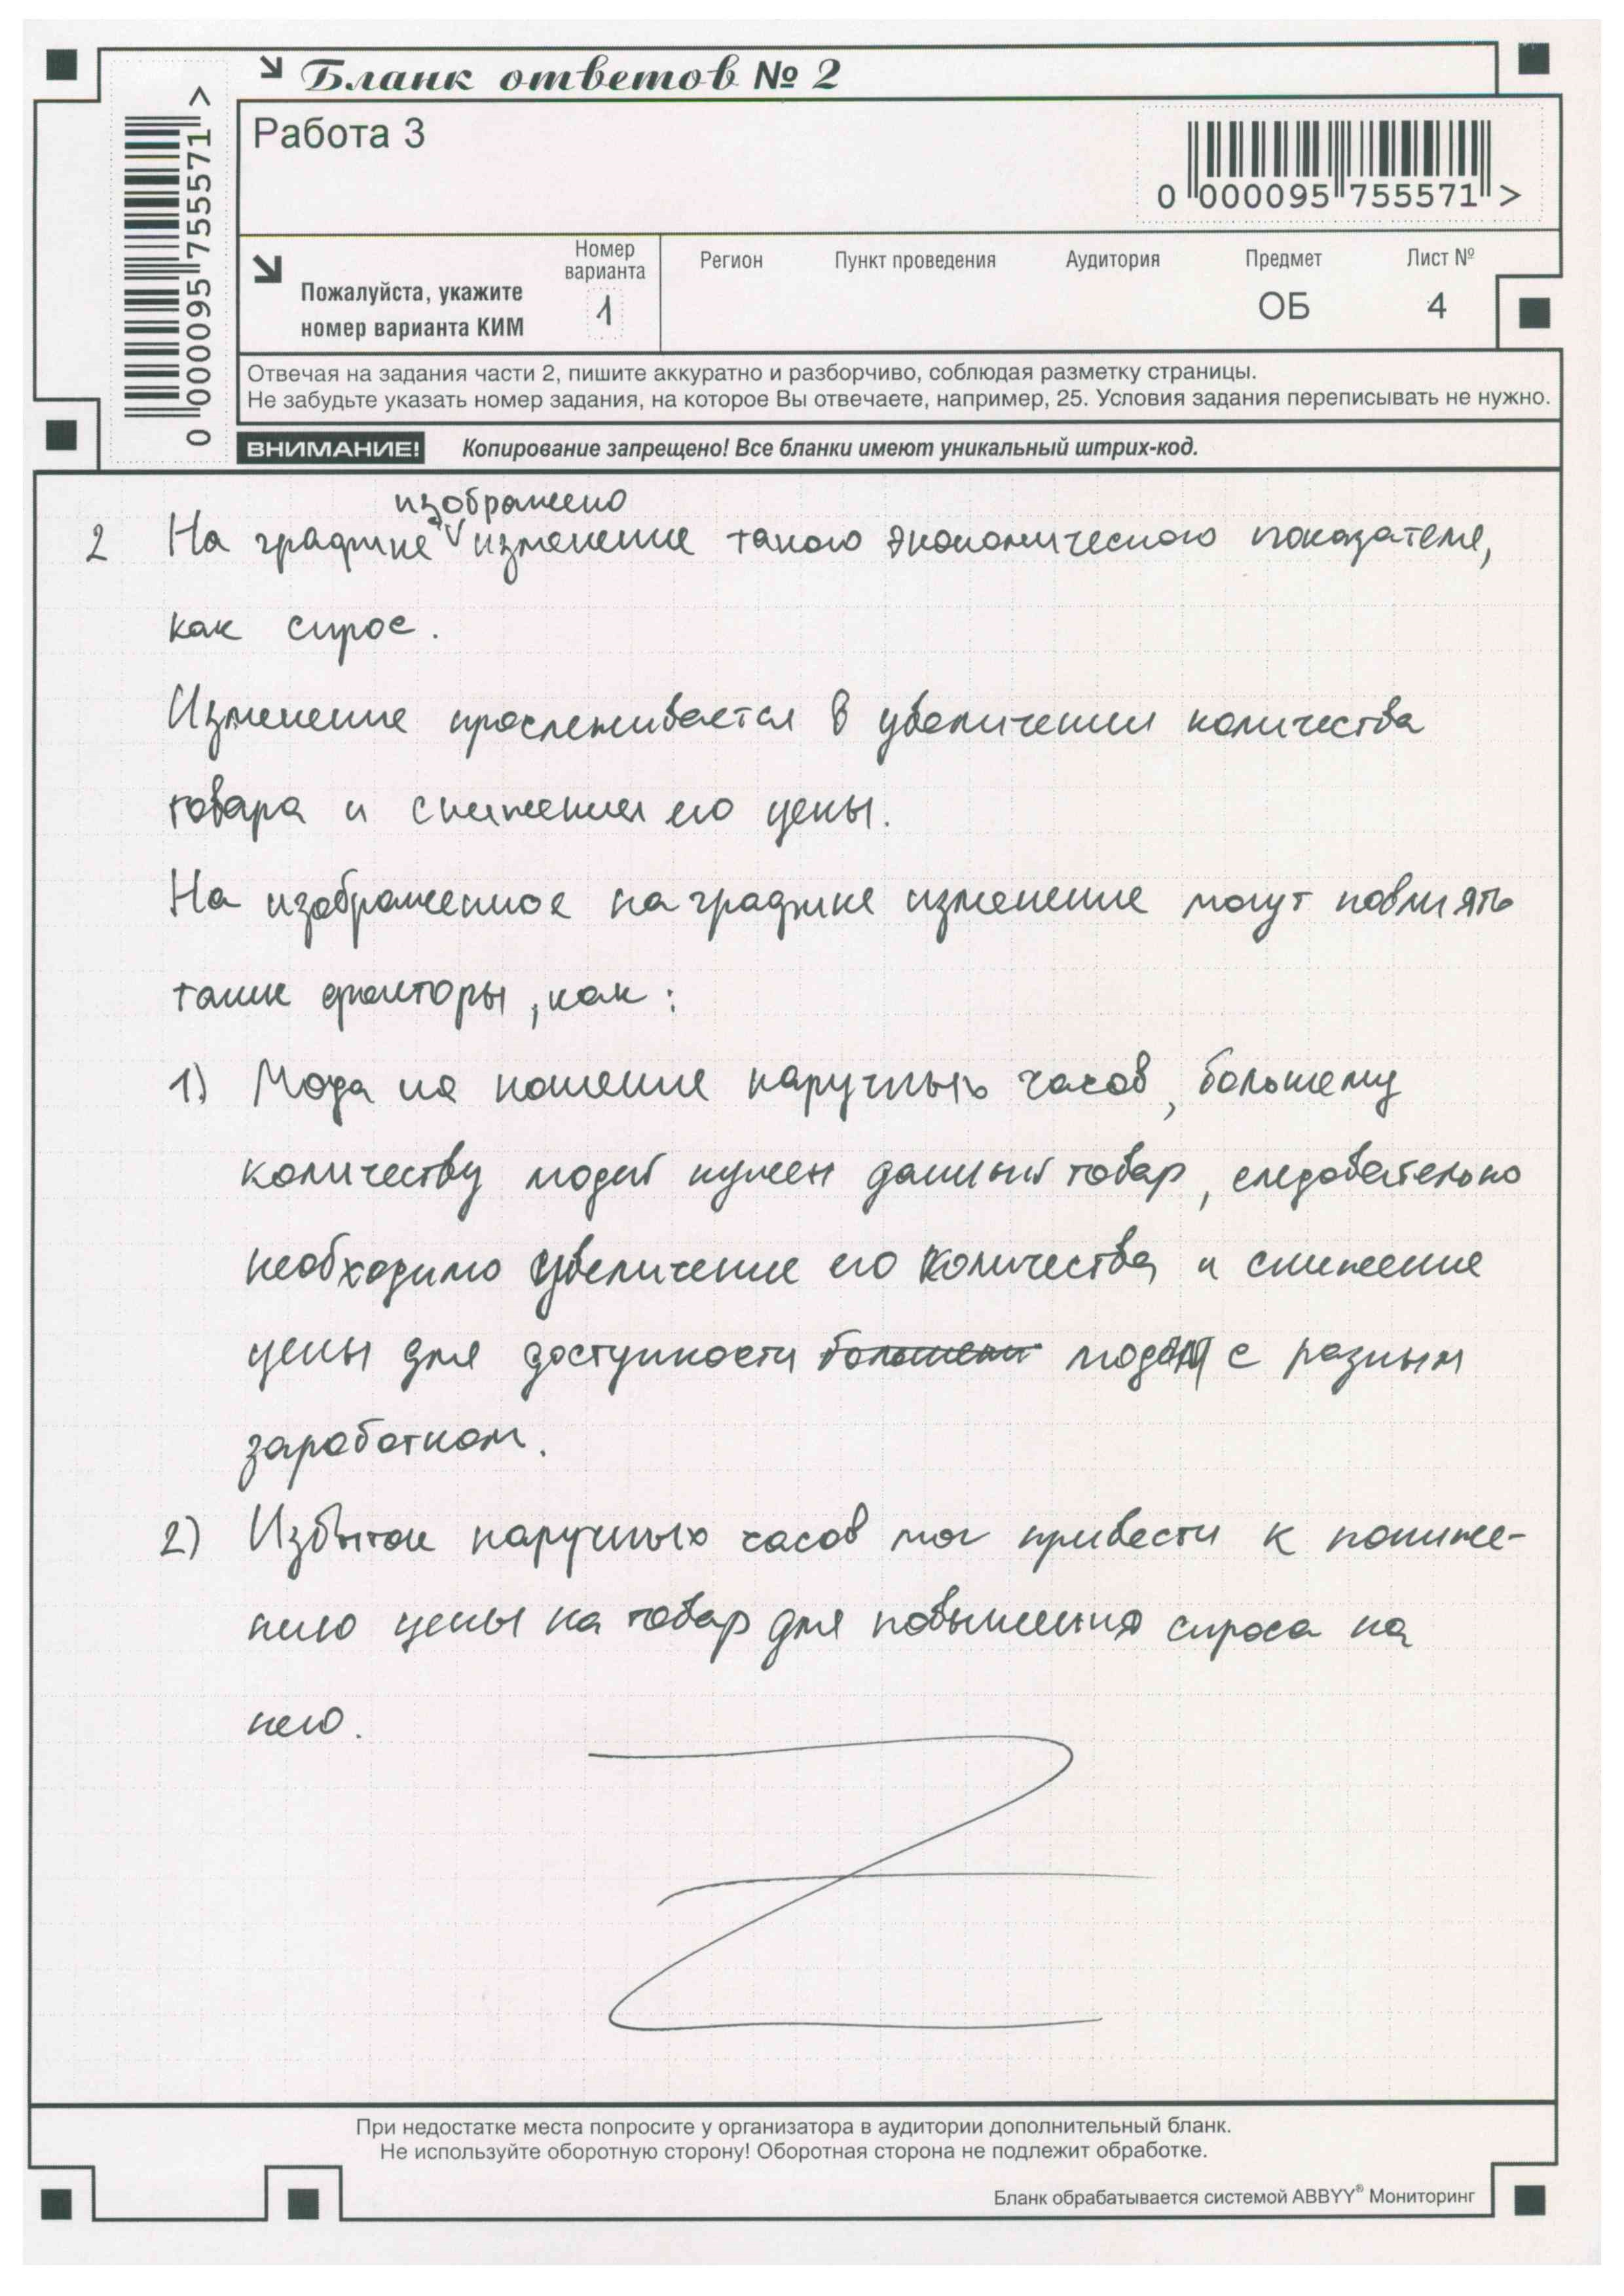 Бланк ответов № 2
Работа 3
0 000095 755571 >
0 000095 755571 >
Пожалуйста, укажите
номер варианта КИМ
Номер
варианта
1
Регион
Пункт проведения
Аудитория
Предмет
ОБ
Лист №
4
Отвечая на задания части 2, пишите аккуратно и разборчиво, соблюдая разметку страницы.
Не забудьте указать номер задания, на которое Вы отвечаете, например, 25. Условия задания переписывать не нужно.
ВНИМАНИЕ! Копирование запрещено! Все бланки имеют уникальный штрих-код.
изображено
2 На графике изменение такого экономического показателя,
как спрос.
Изменение прослеживается в увеличении количества
товара и снижении его цены.
На изображенное на графике изменение могут повлиять
такие факторы, как:
1) Мода на ношение наручных часов, большему
количеству людей нужен данный товар, следовательно
необходимо увеличение его количества и снижение
цены для доступности людям с разным
заработком.
2) Избыток наручных часов мог привести к пониже-
нию цены на товар для повышения спроса на
него.
При недостатке места попросите у организатора в аудитории дополнительный бланк.
Не используйте оборотную сторону! Оборотная сторона не подлежит обработке.
Бланк обрабатывается системой ABBYY® Мониторинг